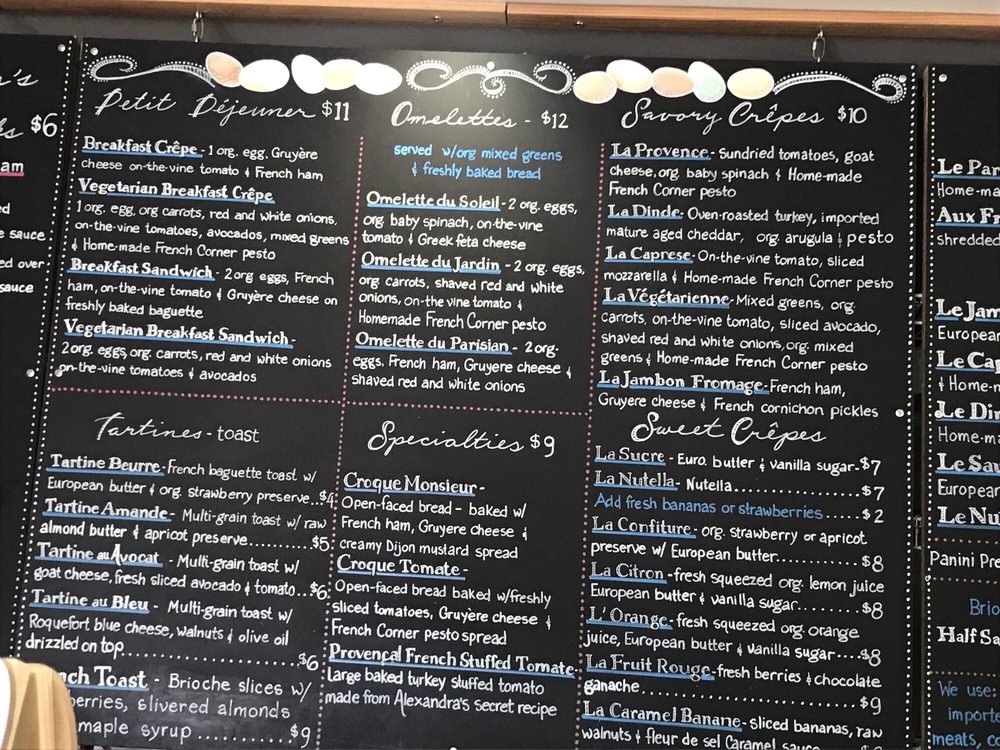 r's
ks $6
am
ed
e sauce
ed over
sauce
Petit Déjeuner $11
Breakfast Crêpe - 1 org. egg, Gruyère
cheese on-the-vine tomato & French ham
Vegetarian Breakfast Crêpe
1 org. egg, org carrots, red and white onions,
on-the-vine tomatoes, avocados, mixed greens
& Home-made French Corner pesto
Breakfast Sandwich - 2 org eggs, French
ham, on-the-vine tomato & Gruyère cheese on
freshly baked baguette
Vegetarian Breakfast Sandwich -
2 org. eggs, org. carrots, red and white onions
on-the-vine tomatoes & avocados
Tartines - toast
Tartine Beurre - French baguette toast w/
European butter & org. strawberry preserve..$4
Tartine Amande - Multi-grain toast w/ raw
almond butter & apricot preserve..........$5
Tartine au Avocat - Multi-grain toast w/
goat cheese, fresh sliced avocado & tomato...$6
Tartine au Bleu - Multi-grain toast w/
Roquefort blue cheese, walnuts & olive oil
drizzled on top........................$6
nch Toast - Brioche slices w/
berries, slivered almonds
maple syrup ............$9
Omelettes - $12
served w/org mixed greens
& freshly baked bread
Omelette du Soleil - 2 org. eggs,
org. baby spinach, on-the-vine
tomato & Greek feta cheese
Omelette du Jardin - 2 org. eggs,
org carrots, shaved red and white
onions, on-the vine tomato &
Homemade French Corner pesto
Omelette du Parisian - 2 org.
eggs, French ham, Gruyere cheese &
shaved red and white onions
Specialties $9
Croque Monsieur -
Open-faced bread - baked w/
French ham, Gruyere cheese &
creamy Dijon mustard spread
Croque Tomate -
Open-faced bread baked w/freshly
sliced tomatoes, Gruyère cheese &
French Corner pesto spread
Provençal French Stuffed Tomate-
Large baked turkey stuffed tomato
made from Alexandra's secret recipe
Savory Crêpes $10
La Provence - Sundried tomatoes, goat
cheese, org. baby spinach & Home-made
French Corner pesto
La Dinde - Oven-roasted turkey, imported
mature aged cheddar, org. arugula & pesto
La Caprese - On-the-vine tomato, sliced
mozzarella & Home-made French Corner pesto
La Végétarienne - Mixed greens, org.
carrots, on-the-vine tomato, sliced avocado,
shaved red and white onions, org. mixed
greens & Home-made French Corner pesto
La Jambon Fromage - French ham,
Gruyere cheese & French cornichon pickles
Sweet Crêpes
La Sucre - Euro. butter & vanilla sugar..$7
La Nutella - Nutella..................$7
Add fresh bananas or strawberries .....$2
La Confiture - org. strawberry or apricot
preserve w/ European butter............$8
La Citron - fresh squeezed org. lemon juice
European butter & vanilla sugar.........$8
L'Orange - fresh squeezed org. orange
juice, European butter & vanilla sugar....$8
La Fruit Rouge - fresh berries & chocolate
ganache..............................$9
La Caramel Banane - sliced bananas, raw
walnuts & fleur de sel Caramel sauce
Le Par
Home-ma
Aux Fr
shredded
Le Jam
European
Le Cap
& Home-m
Le Din
Home-ma
Le Sau
European
Le Nu
Panini Pre
Brio
Half Sa
We use:
importe
meats, co